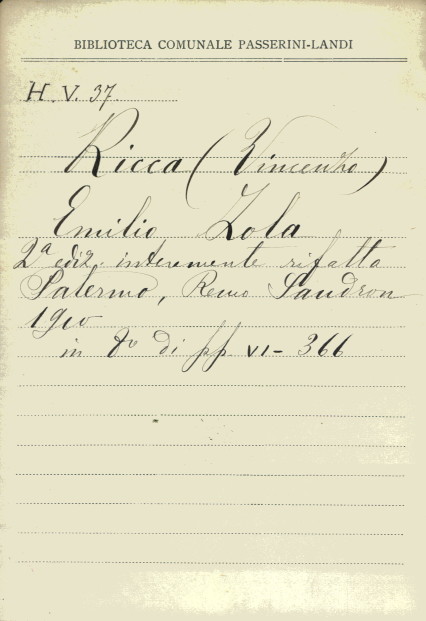 BIBLIOTECA COMUNALE PASSERINI-LANDI
H. V. 37.
Ricca (Vincenzo)
Emilio Zola
2ª ediz. interemente rifatta
Palermo, Remo Sandron
1910
in 8º di pp VI - 366